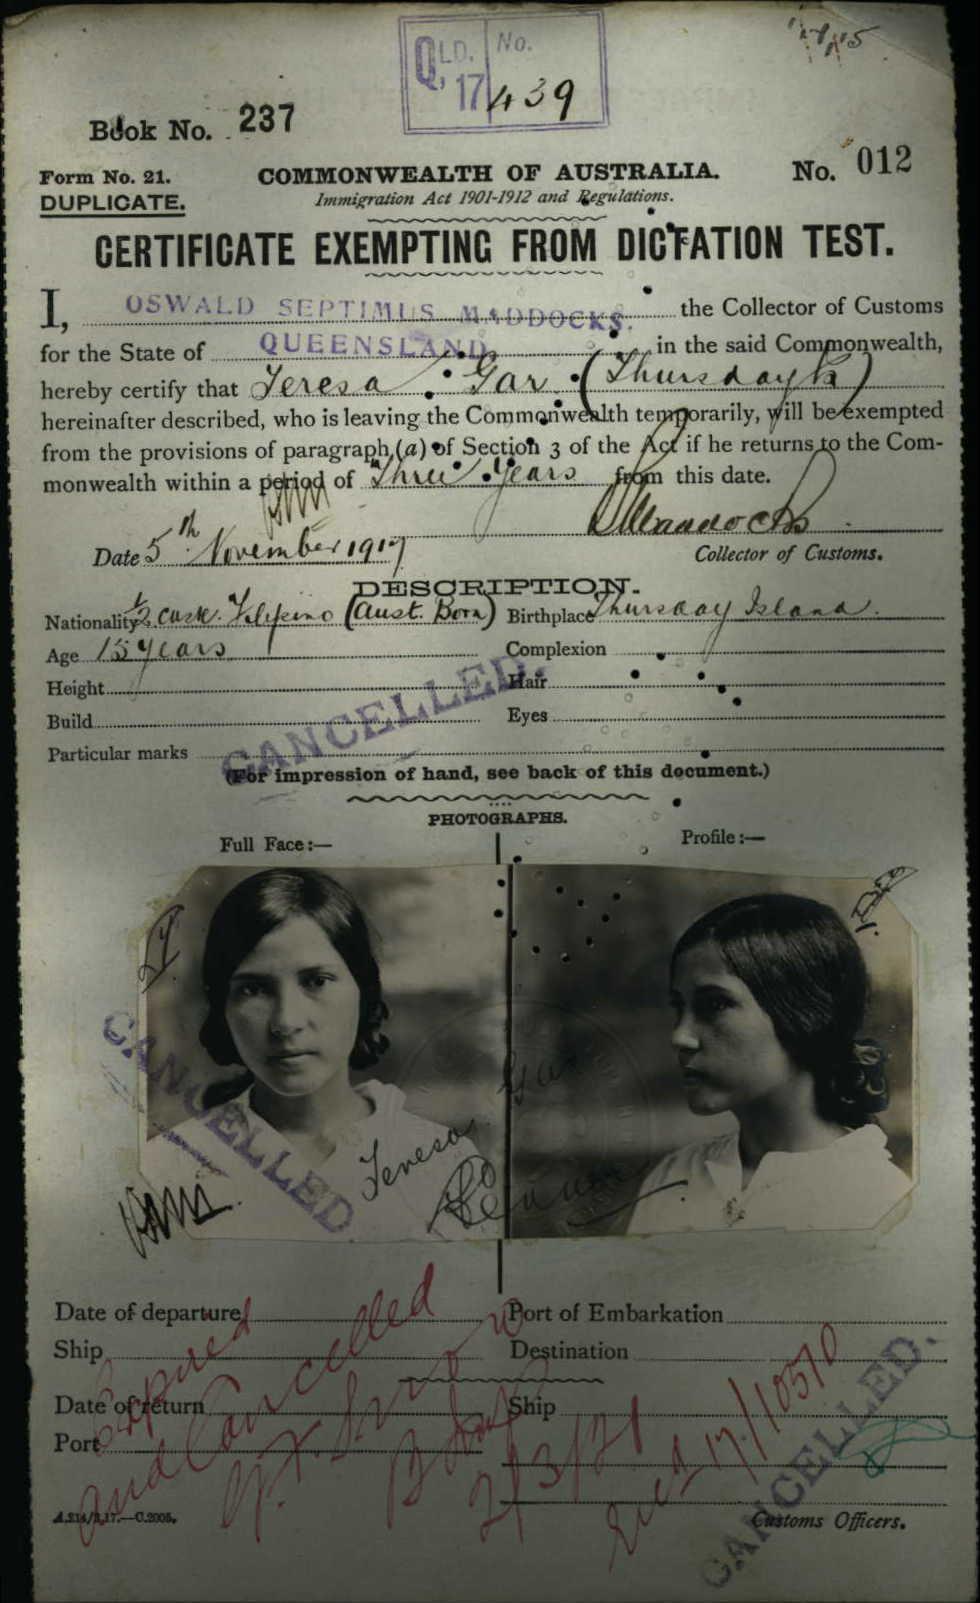 QLD. No.
17 439
Book No. 237
Form No. 21. COMMONWEALTH OF AUSTRALIA. No. 012
DUPLICATE. Immigration Act 1901-1912 and Regulations.
CERTIFICATE EXEMPTING FROM DICTATION TEST.
I, OSWALD SEPTIMUS MADDOCKS. the Collector of Customs
for the State of QUEENSLAND in the said Commonwealth,
hereby certify that Teresa Gar (Thursday Is)
hereinafter described, who is leaving the Commonwealth temporarily, will be exempted
from the provisions of paragraph (a) of Section 3 of the Act if he returns to the Com-
monwealth within a period of Three Years from this date.
OSMaddocks
Date 5th November 1917 Collector of Customs.
DESCRIPTION.
Nationality ½ caste Filipino (Aust. Born) Birthplace Thursday Island.
Age 15 years Complexion
Height Hair
Build Eyes
Particular marks
CANCELLED.
(For impression of hand, see back of this document.)
PHOTOGRAPHS.
Full Face:— Profile:—
CANCELLED
Teresa Gar
Date of departure Port of Embarkation
Ship Destination
Date of return Ship
Port
Expired
and Cancelled
2/3/21
17/10570
CANCELLED.
A.214/3.17.—C.2005. Customs Officers.